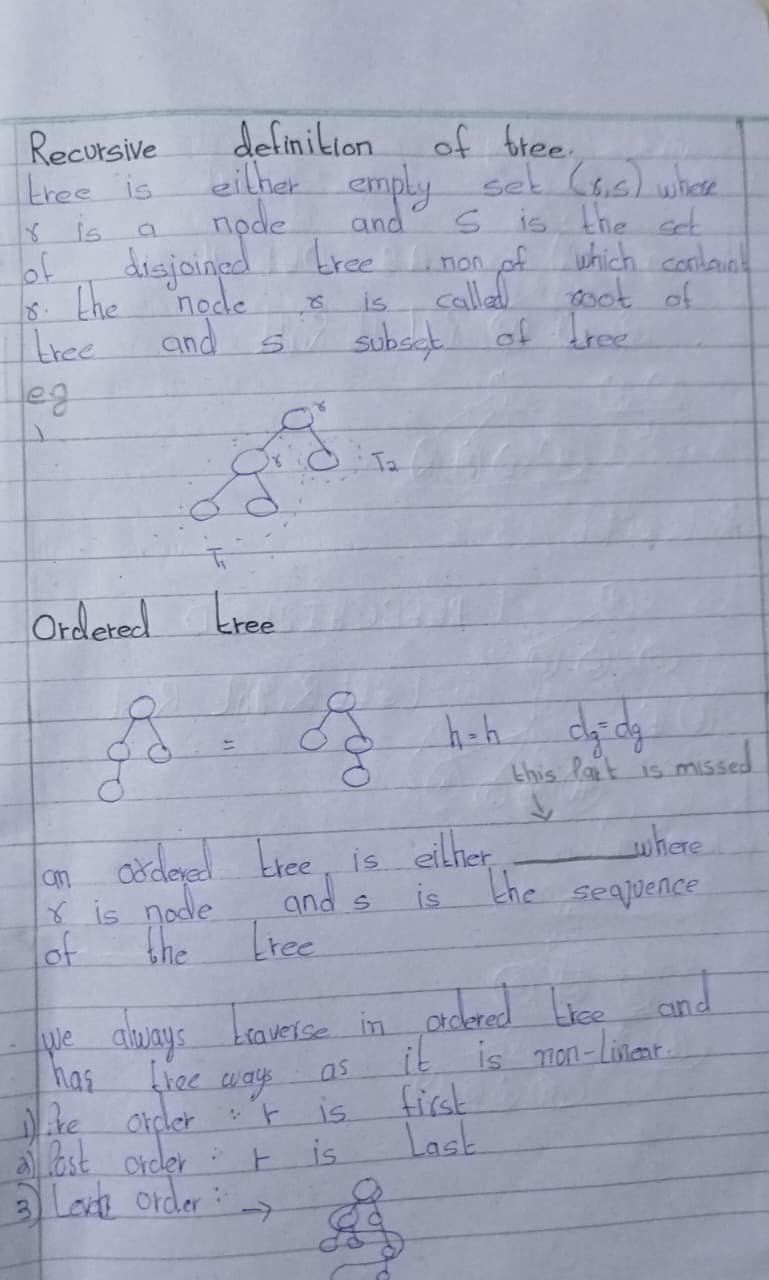 Recursive definition of tree.
tree is either empty set (r,s) where
r is a node and S is the set
of disjoined tree non of which contain
r. the node r is called root of
tree and s subset of tree
eg
1
r
r T2
T1
Ordered tree
= h=h dg=dg
this Part is missed
an ordered tree is either ______ where
r is node and s is the seqquence
of the tree
we always traverse in ordered tree and
has tree ways as it is non-linear.
1) Pre order : r is first
2) Post order : r is Last
3) order : →